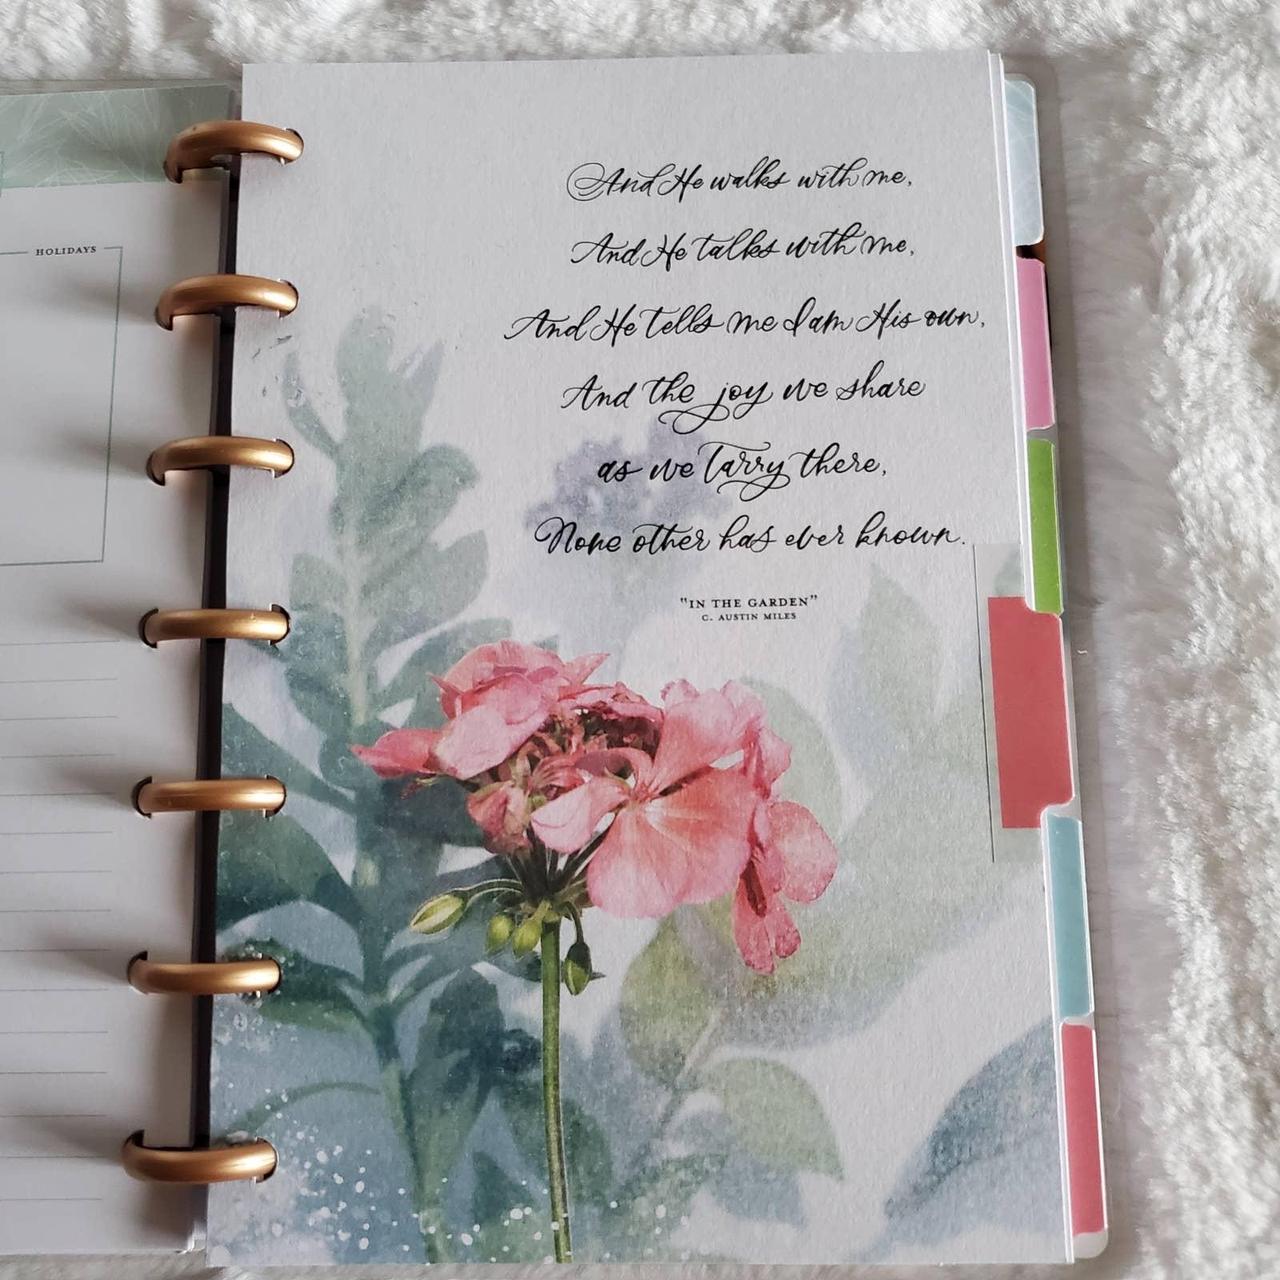 HOLIDAYS
And He walks with me,
And He talks with me,
And He tells me I am His own,
And the joy we share
as we tarry there,
None other has ever known.
"IN THE GARDEN"
C. AUSTIN MILES